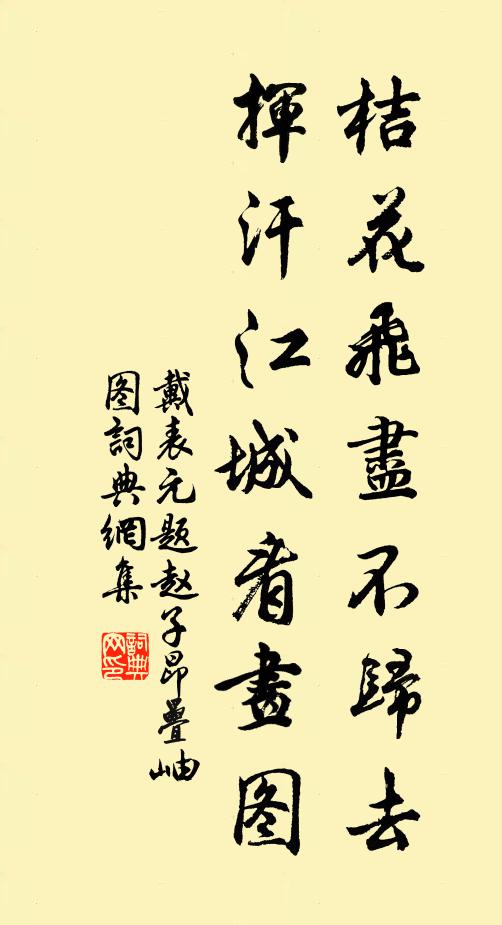 桔花飛盡不歸去
揮汗江城看畫图
戴表元題赵子昂疊岫
图詞典網集
詞典网印